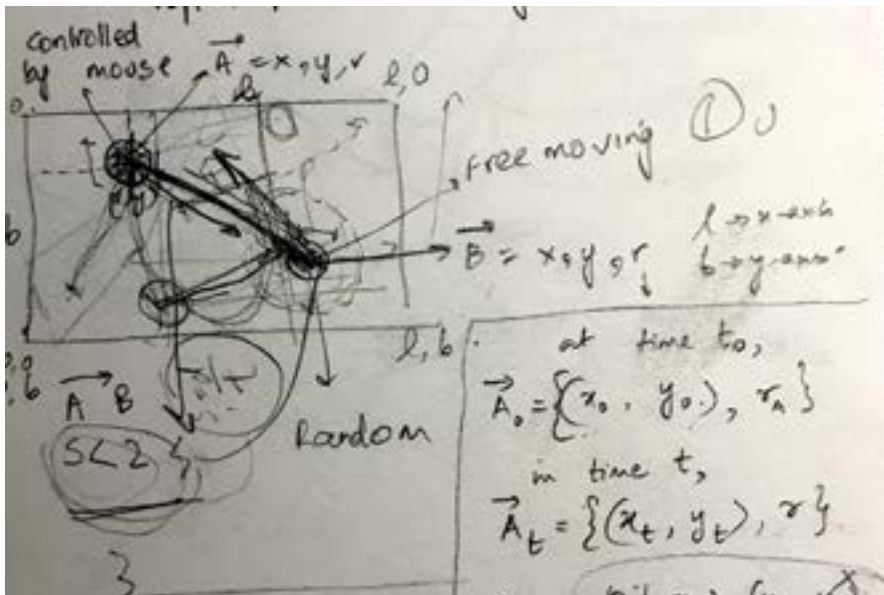 controlled
by mouse
A = x, y, r
l, 0
b
Free moving ①
B = x, y, r
l → x-axis
b → y-axis
l, b
A B
S < 2 {
}
Random
at time t₀,
A₀ = {(x₀, y₀), r_A}
in time t,
A_t = {(x_t, y_t), r}